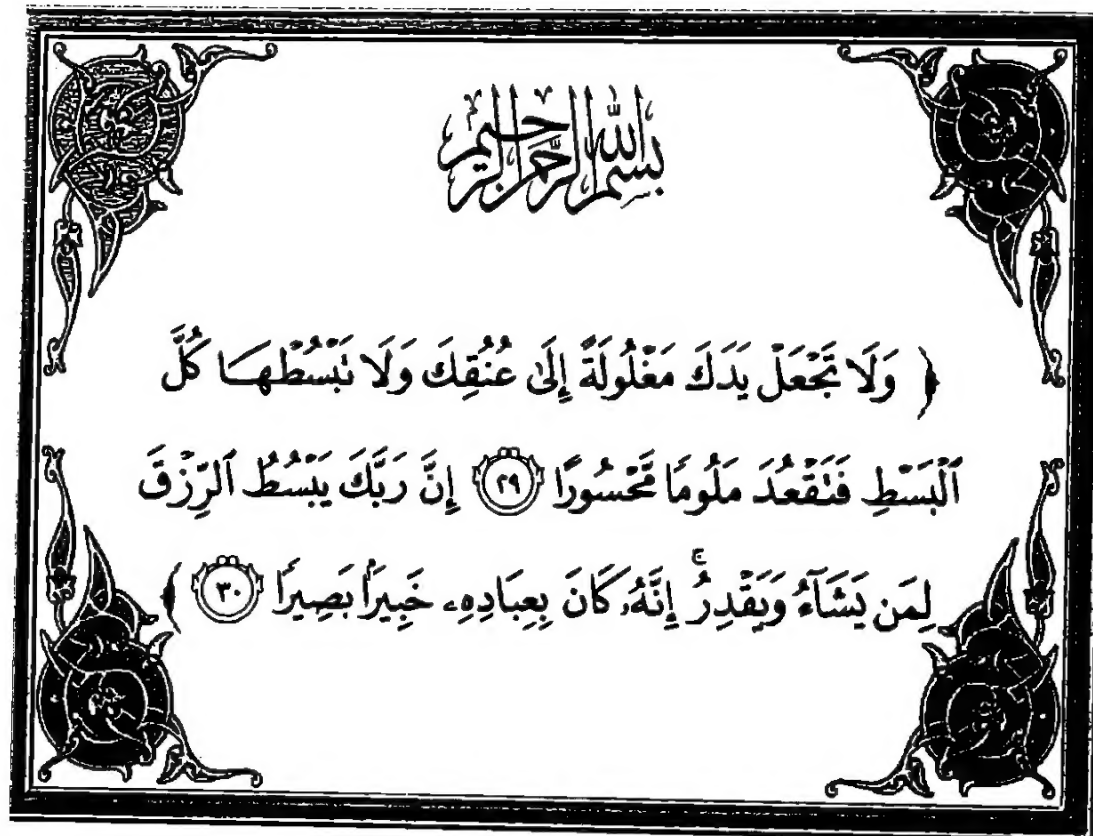 بسم الله الرحمن الرحيم
﴿ وَلَا تَجْعَلْ يَدَكَ مَغْلُولَةً إِلَىٰ عُنُقِكَ وَلَا تَبْسُطْهَا كُلَّ
ٱلْبَسْطِ فَتَقْعُدَ مَلُومًا مَّحْسُورًا ٢٩ إِنَّ رَبَّكَ يَبْسُطُ ٱلرِّزْقَ
لِمَن يَشَآءُ وَيَقْدِرُ ۚ إِنَّهُۥ كَانَ بِعِبَادِهِۦ خَبِيرًۢا بَصِيرًا ٣٠ ﴾